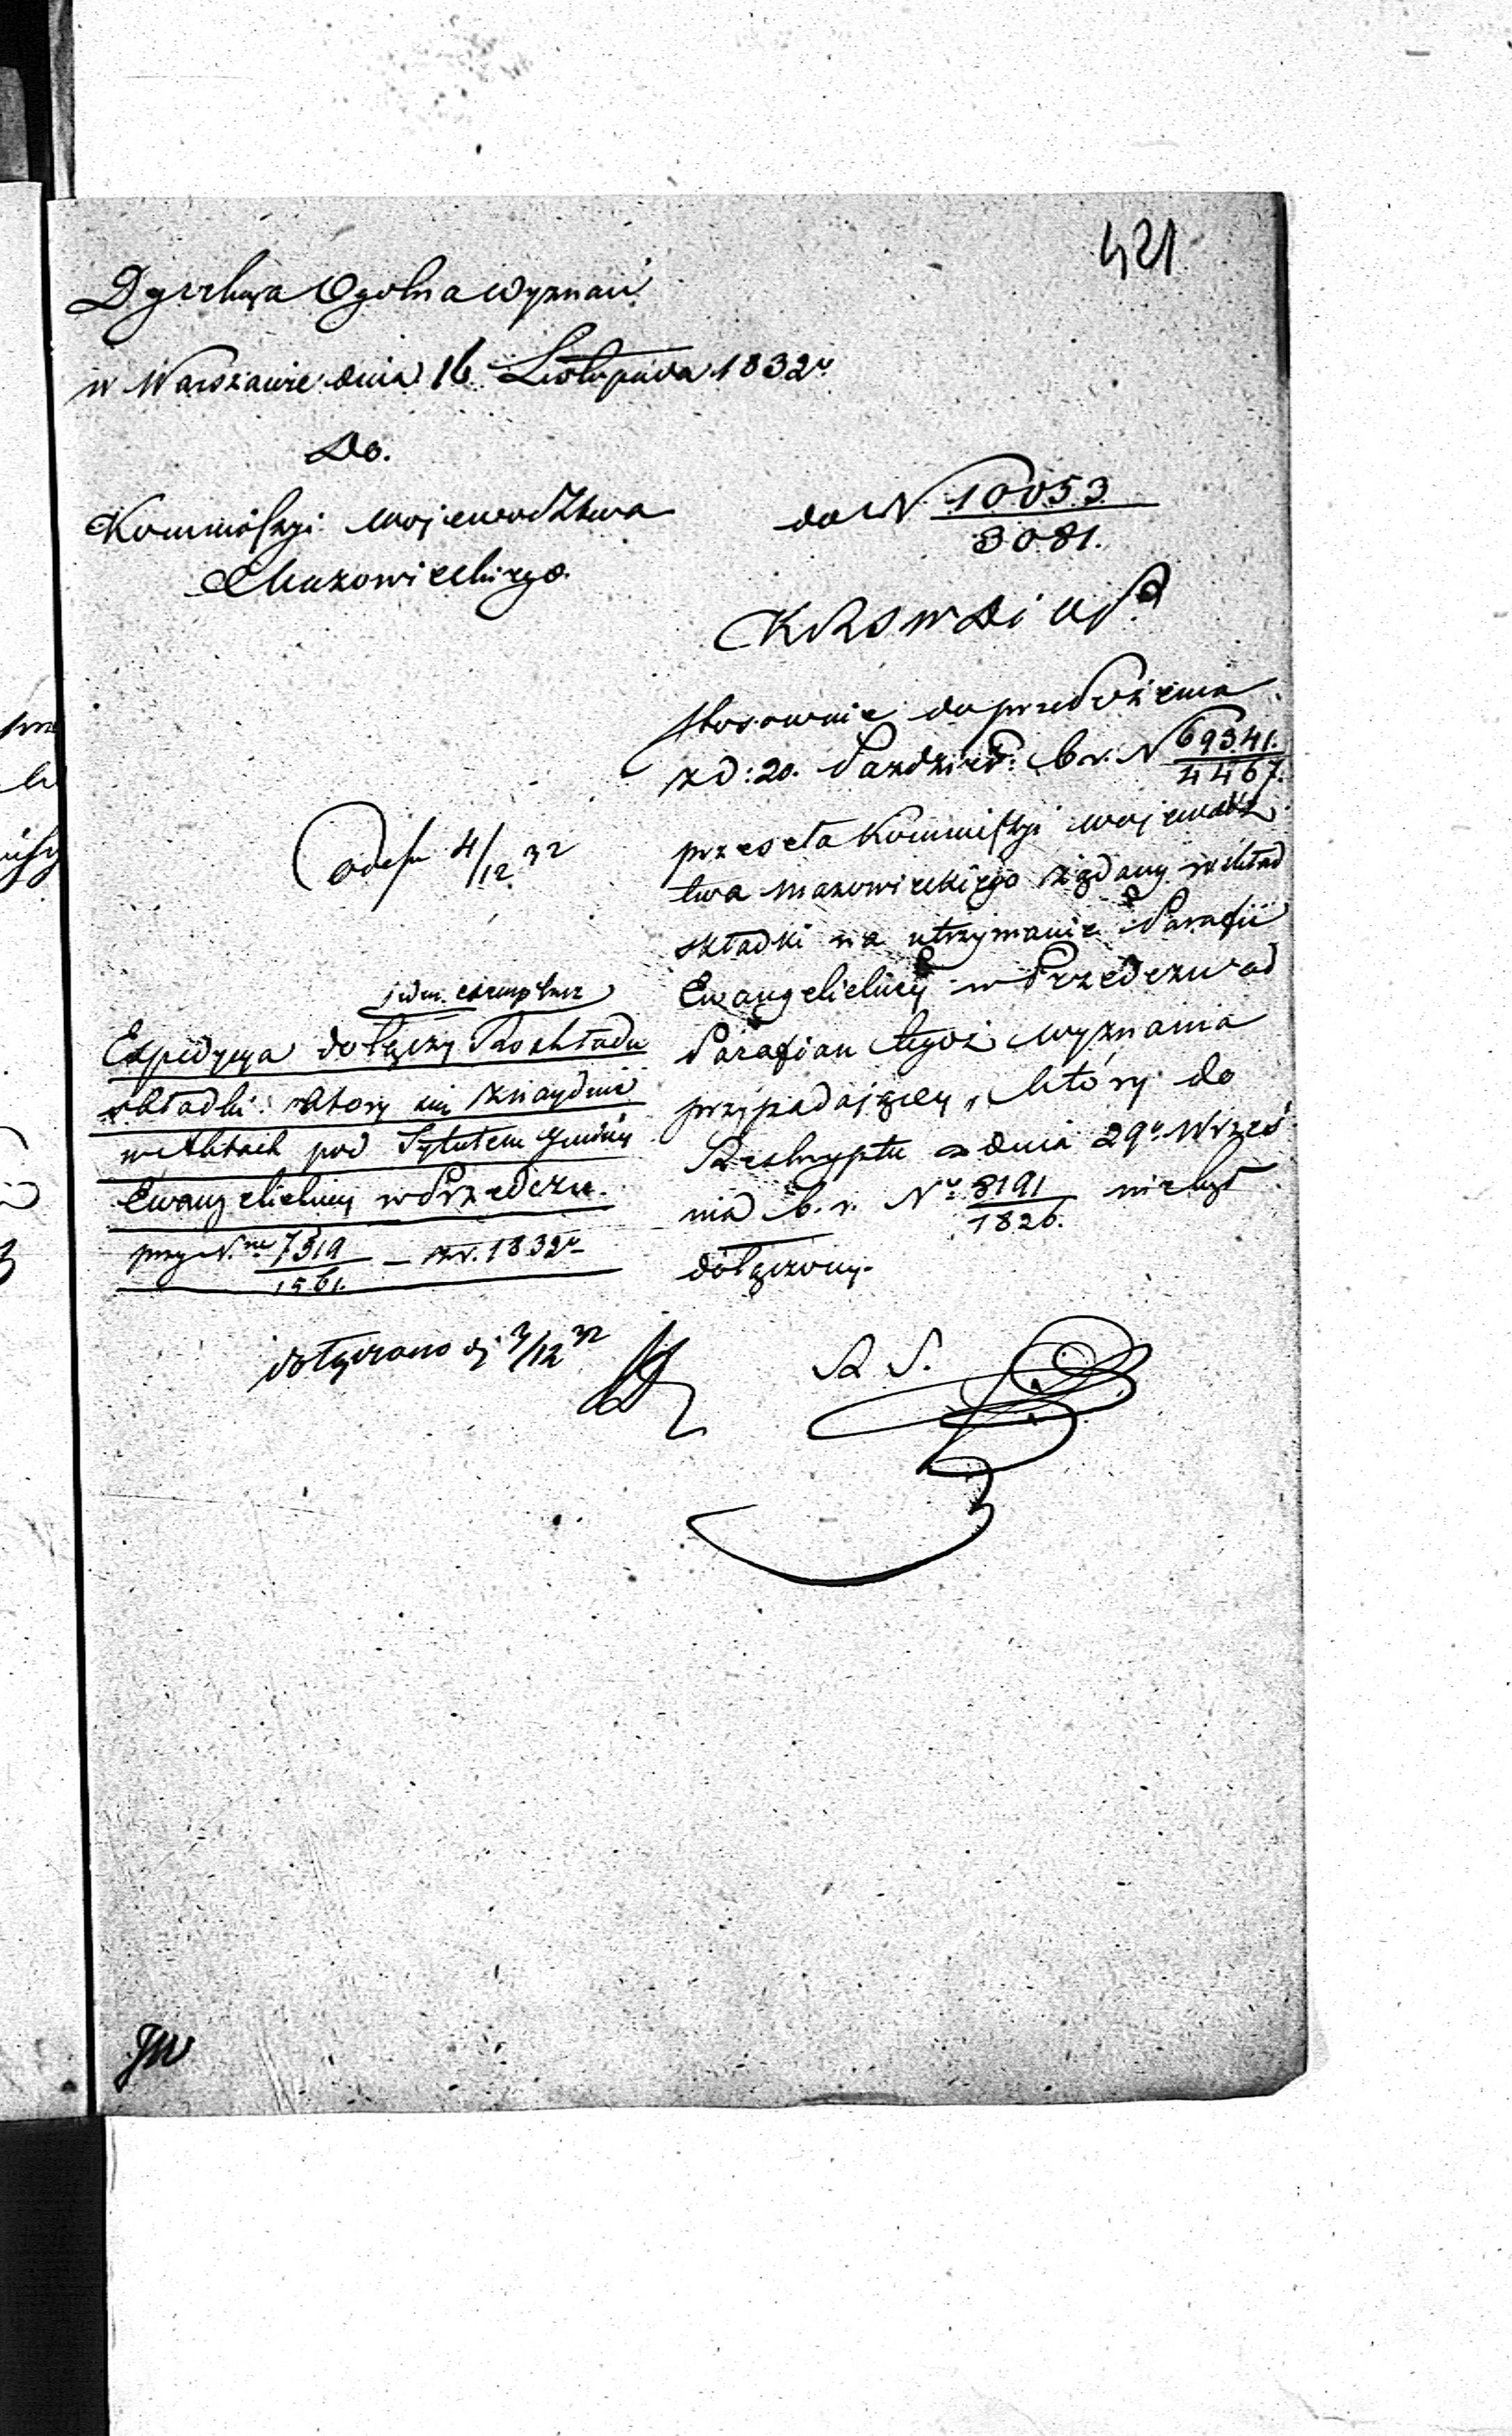 421
Dyrekcya Ogolna Wyznań
w Warszawie dnia 16 Listopada 1832 r
Do.
Kommissyi Wojewodztwa
Mazowieckiego.
do N 10053/3081.
KRSWDiOP
Stosownie do przedłożenia
z d: 20. Paździer: b. r. N 69341./4467.
przeseła Kommissyi Wojewodz
twa Mazowieckiego żądany wkład
składki na utrzymanie Parafii
Ewangelickiey w Przedczu od
Parafian tegoż wyznania
przypadaiącey, który do
Reskryptu z dnia 29 Wrześ
nia b. r. N 8191/1826. niebył
dołączony.
4/12 32
jeden exemplarz
Expedycya dołączy Rozkładu
składki który się znayduie
w Aktach pod Tytułem Gminy
Ewangelickiey w Przedczu.
przy N. 7319/1561. – z r. 1832
dołączono d 3/12 32